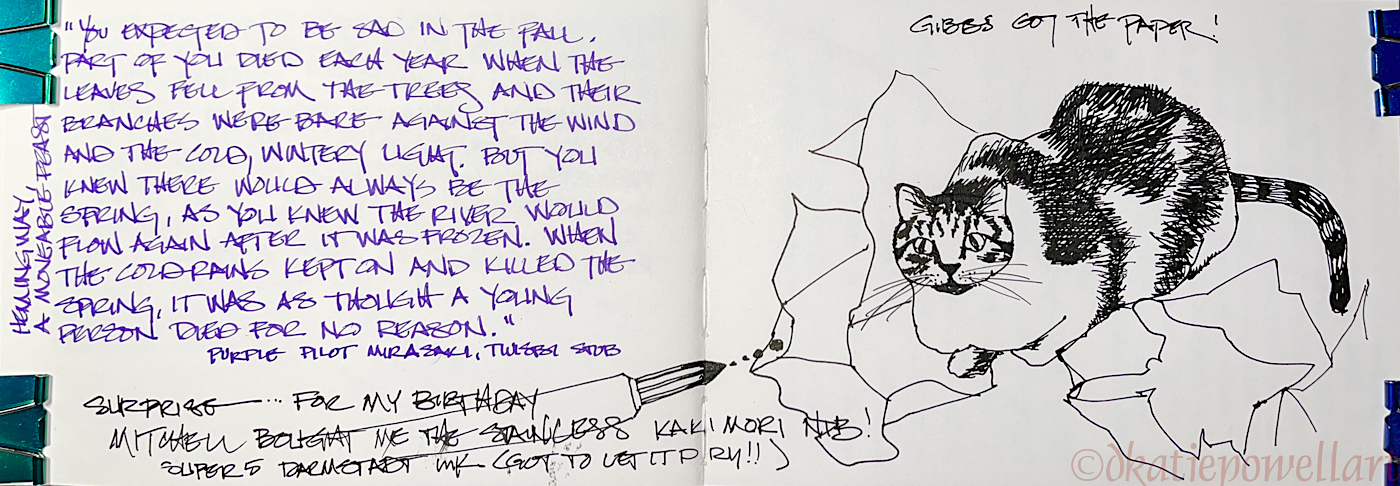 "YOU EXPECTED TO BE SAD IN THE FALL.
PART OF YOU DIED EACH YEAR WHEN THE
LEAVES FELL FROM THE TREES AND THEIR
BRANCHES WERE BARE AGAINST THE WIND
AND THE COLD, WINTERY LIGHT. BUT YOU
KNEW THERE WOULD ALWAYS BE THE
SPRING, AS YOU KNEW THE RIVER WOULD
FLOW AGAIN AFTER IT WAS FROZEN. WHEN
THE COLD RAINS KEPT ON AND KILLED THE
SPRING, IT WAS AS THOUGH A YOUNG
PERSON DIED FOR NO REASON."
HEMINGWAY
A MOVEABLE FEAST
PURPLE PILOT MIRASAKI, TWISBI STUB
SURPRISE ... FOR MY BIRTHDAY
MITCHELL BOUGHT ME THE STAINLESS KAKIMORI NIB!
SUPER5 DARMSTADT INK (GOT TO LET IT DRY!!)
GIBBS GOT THE PAPER!
©dkatiepowellart